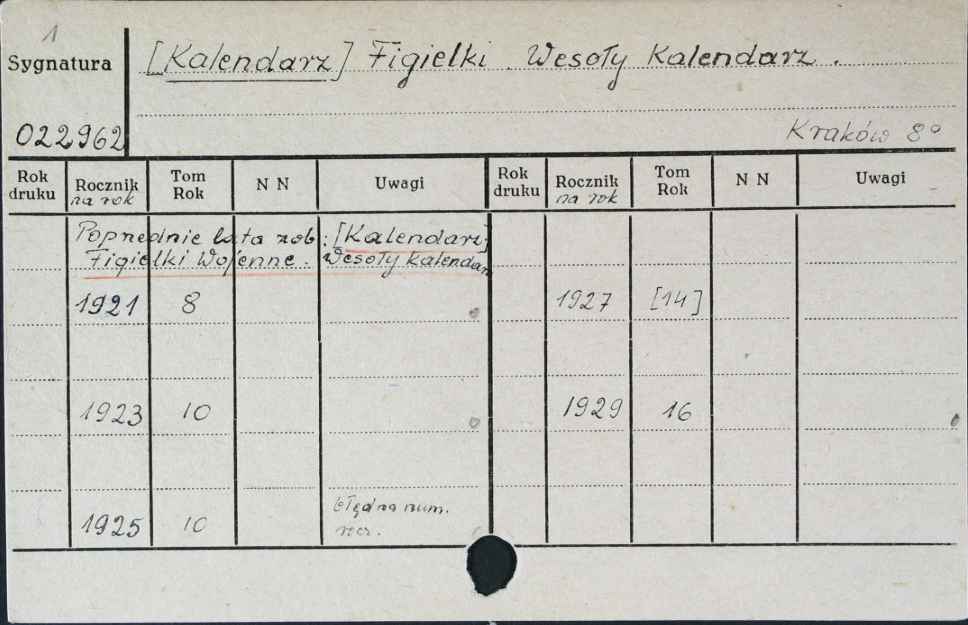 1
Sygnatura [Kalendarz] Figielki. Wesoły Kalendarz.
022962 Kraków 8°
Rok druku Rocznik na rok Tom Rok N N Uwagi Rok druku Rocznik na rok Tom Rok N N Uwagi
Poprzednie lata zob: [Kalendarz]
Figielki Wojenne. Wesoły Kalendarz
1921 8 1927 [14]
1923 10 1929 16
1925 10 błędna num.
rocz.